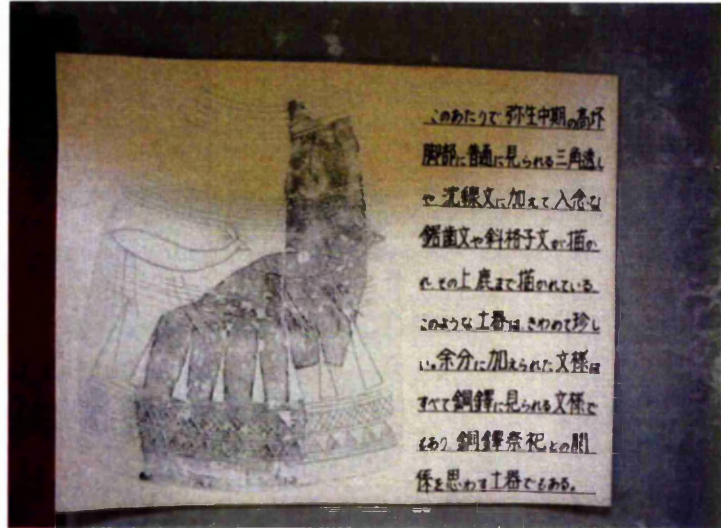 このあたりで弥生中期の高坏
脚部に普通に見られる三角透し
や沈線文に加えて入念な
鋸歯文や斜格子文が描か
れその上鹿まで描かれている
このような土器はきわめて珍し
い。余分に加えられた文様は
すべて銅鐸に見られる文様で
もあり銅鐸祭祀との関
係を思わす土器でもある。